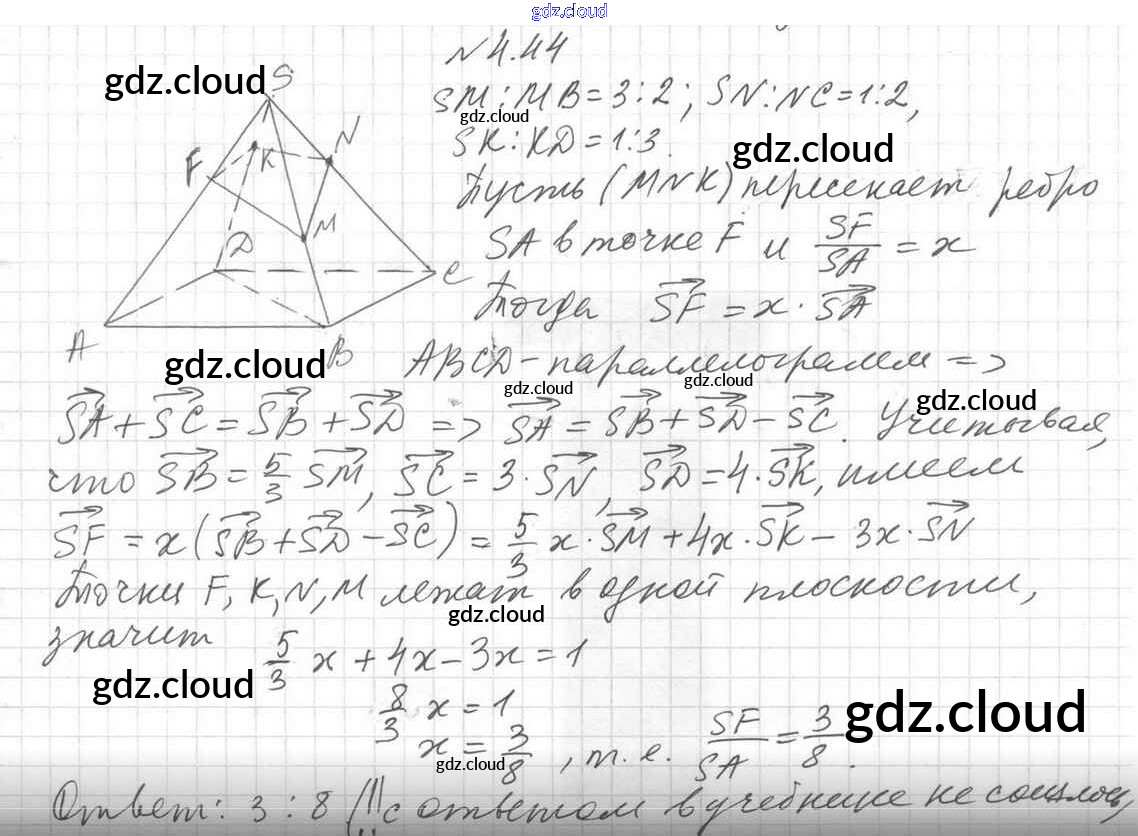 gdz.cloud
№ 4.44
gdz.cloud
S
SM : MB = 3 : 2 ; SN : NC = 1 : 2,
gdz.cloud
SK : KD = 1 : 3.
gdz.cloud
N
F
K
Пусть (MNK) пересекает ребро
M
D
SA в точке F и SF/SA = x
C
Тогда SF = x · SA
A
B
gdz.cloud
ABCD - параллелограмм =>
gdz.cloud
gdz.cloud
gdz.cloud
SA + SC = SB + SD => SA = SB + SD − SC. Учитывая,
что SB = 5/3 SM, SC = 3 · SN, SD = 4 · SK, имеем
SF = x (SB + SD − SC) = 5/3 x · SM + 4x · SK − 3x · SN
Точки F, K, N, M лежат в одной плоскости,
gdz.cloud
значит
5/3 x + 4x − 3x = 1
gdz.cloud
8/3 x = 1
gdz.cloud
x = 3/8, т. е. SF/SA = 3/8.
gdz.cloud
Ответ: 3 : 8 (!! с ответом в учебнике не сошлось,